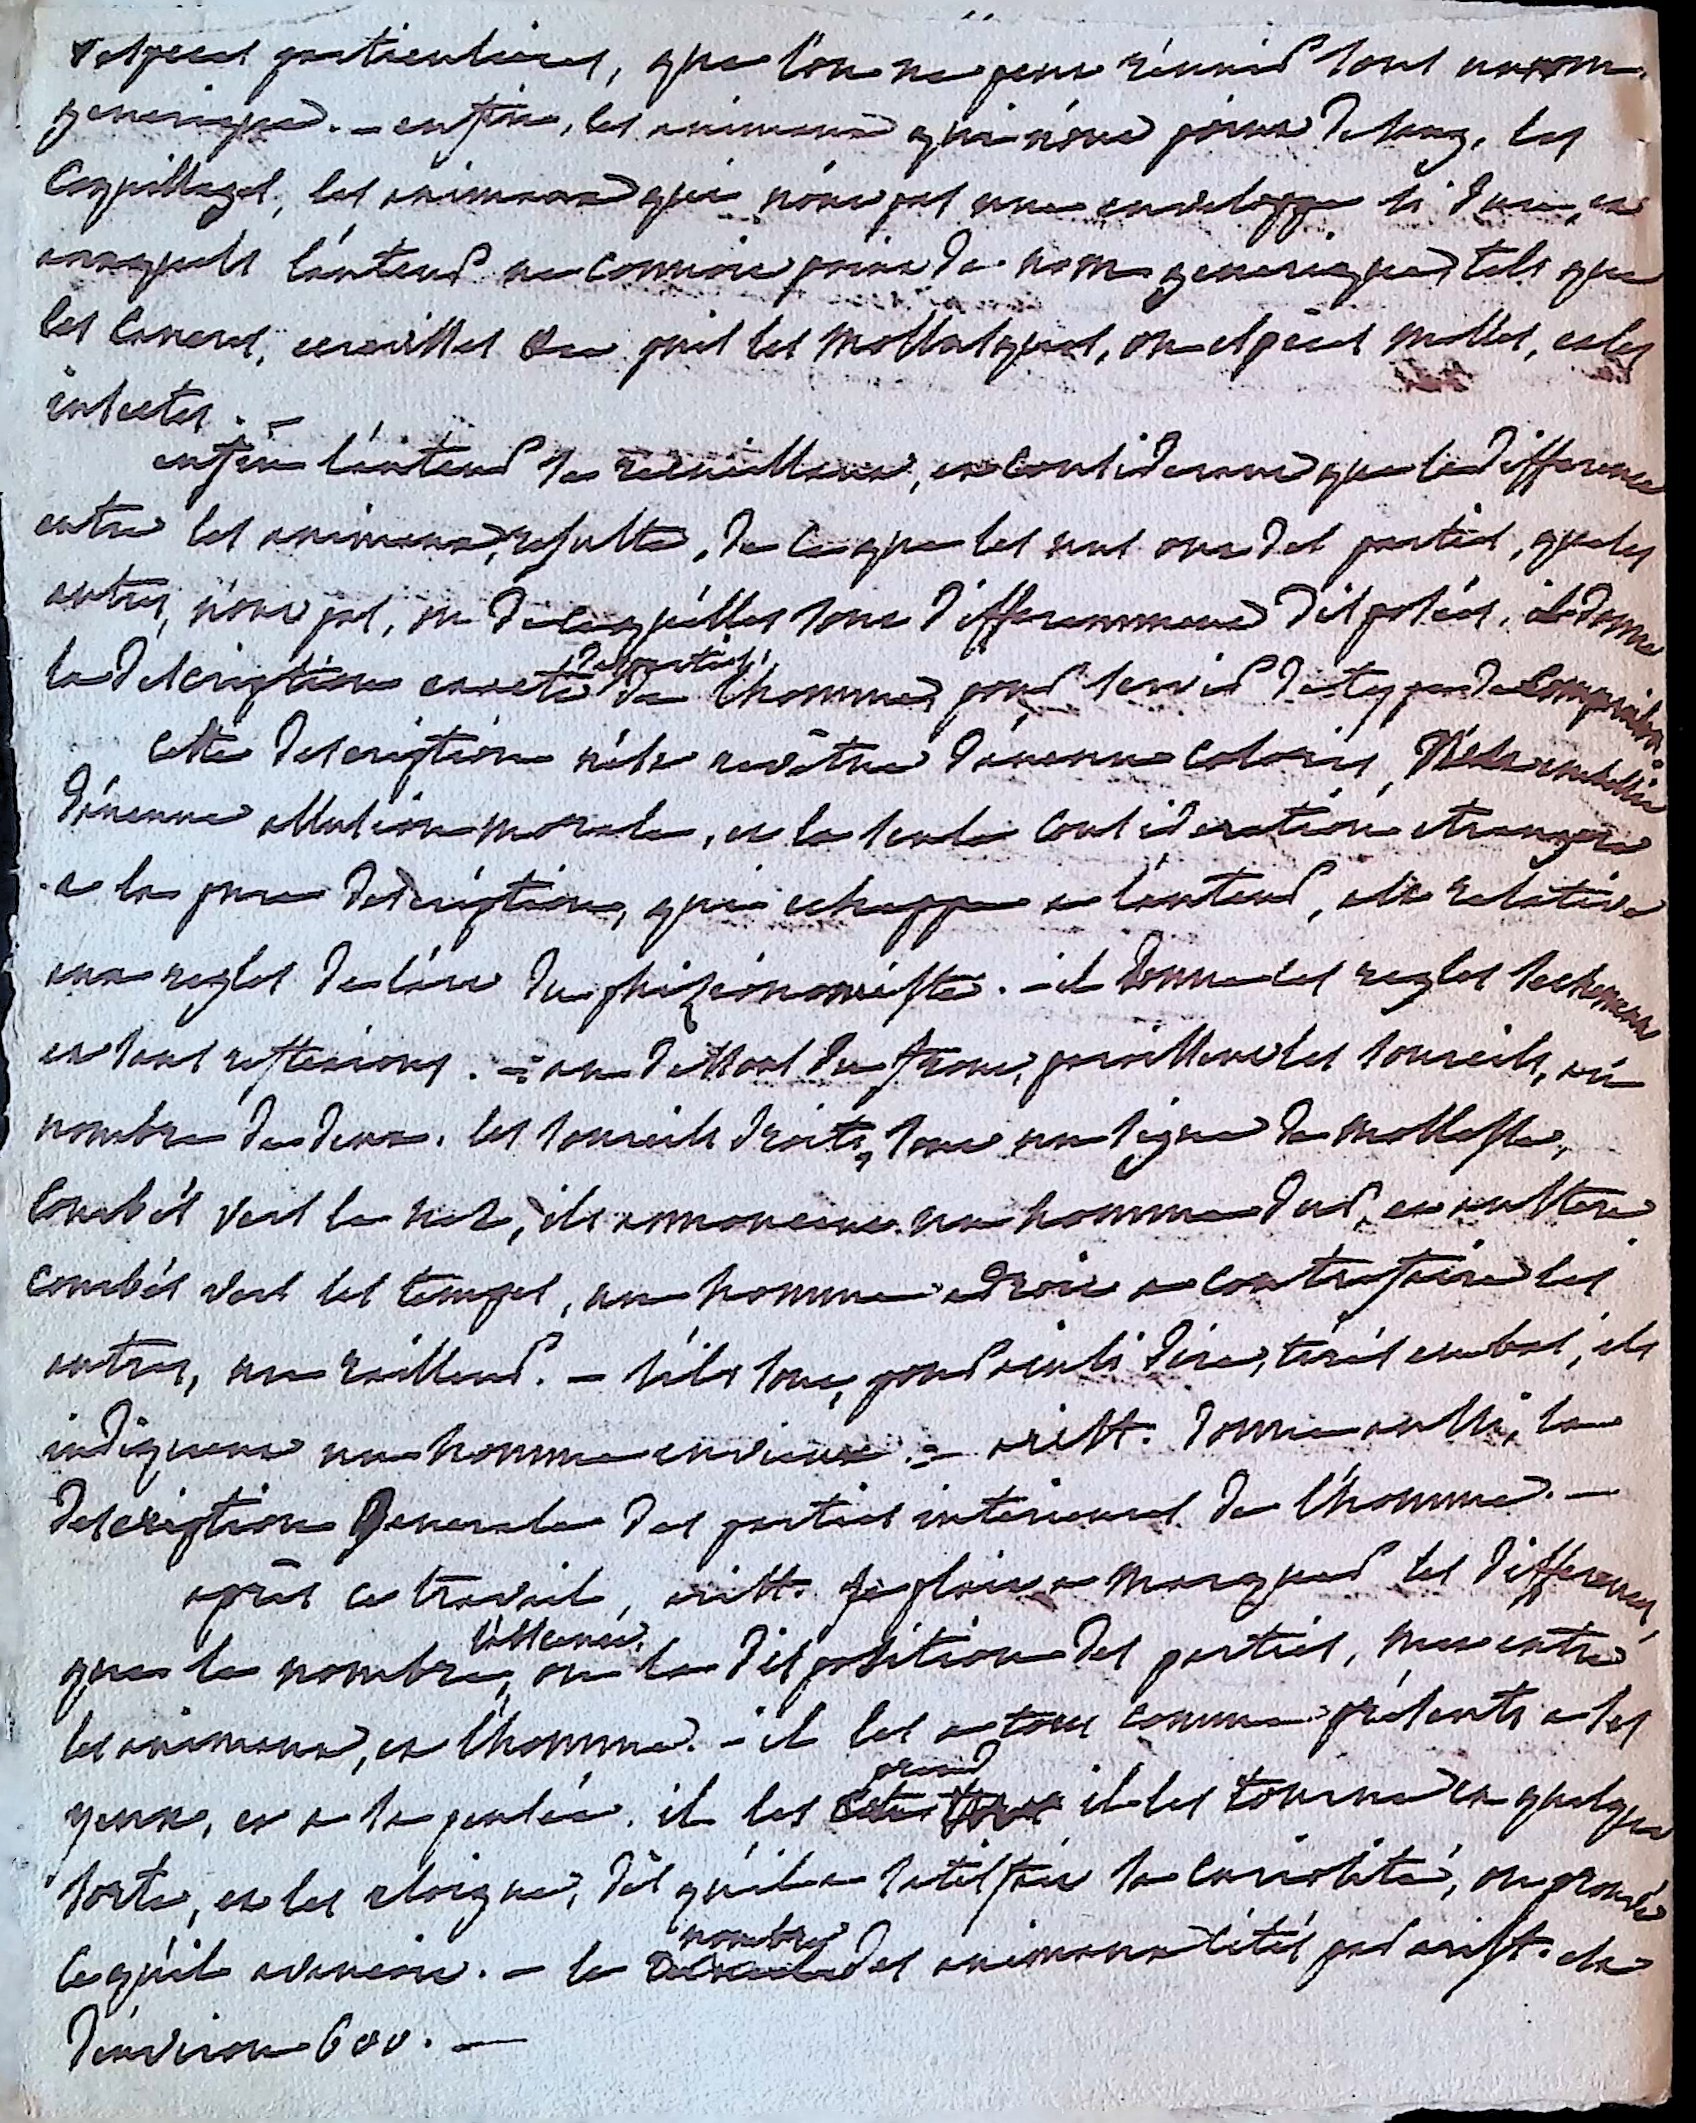 d'especes particulieres, que l'on ne peut réunir sous un nom
generique. - enfin, les animaux qui n'ont point de sang, les
coquillages, les animaux qui n'ont pas une enveloppe si dure, et
auxquels l'auteur ne connoit point de nom generique, tels que
les cancres, ecrevisses &c puis les mollusques, ou especes molles, et les
insectes. -
enfin l'auteur se recueillant, et considerant que la difference
entre les animaux, resulte, de ce que les uns ont des parties, que les
autres, n'ont pas, ou de ce qu'elles sont differemment disposées, il donne
la description exacte des parties de l'homme, pour servir de type de comparaison
cette description n'est revêtue d'aucun coloris, n'est embellie
d'aucune allusion morale, et la seule consideration etrangere
a la pure description, qui echappe a l'auteur, est relative
aux regles de l'art du phizionomiste. - il donne les regles sechement
et sans reflexions. = au dessous du front, paroissent les sourcils, au
nombre de deux. les sourcils droits, sont un signe de mollesse,
courbés vers le nez, ils annoncent un homme dur, et austere
courbés vers les tempes, un homme adroit a contrefaire les
autres, un railleur. - s'ils sont, pour ainsi dire, tirés en bas, ils
indiquent un homme envieux. = arist. donne aussi, la
description generale des parties interieures de l'homme. -
après ce travail, arist. se plait a marquer les differences,
que le nombre, l'absence, ou la disposition des parties, met entre
les animaux, et l'homme. - il les a tous comme présents a ses
yeux, et a sa pensée. il les prend il les tourne en quelque
sorte, et les eloigne, dès qu'il a satisfait sa curiosité, ou prouvé
ce qu'il avancoit. - le nombre des animaux cités par arist. est
d'environ 600. -